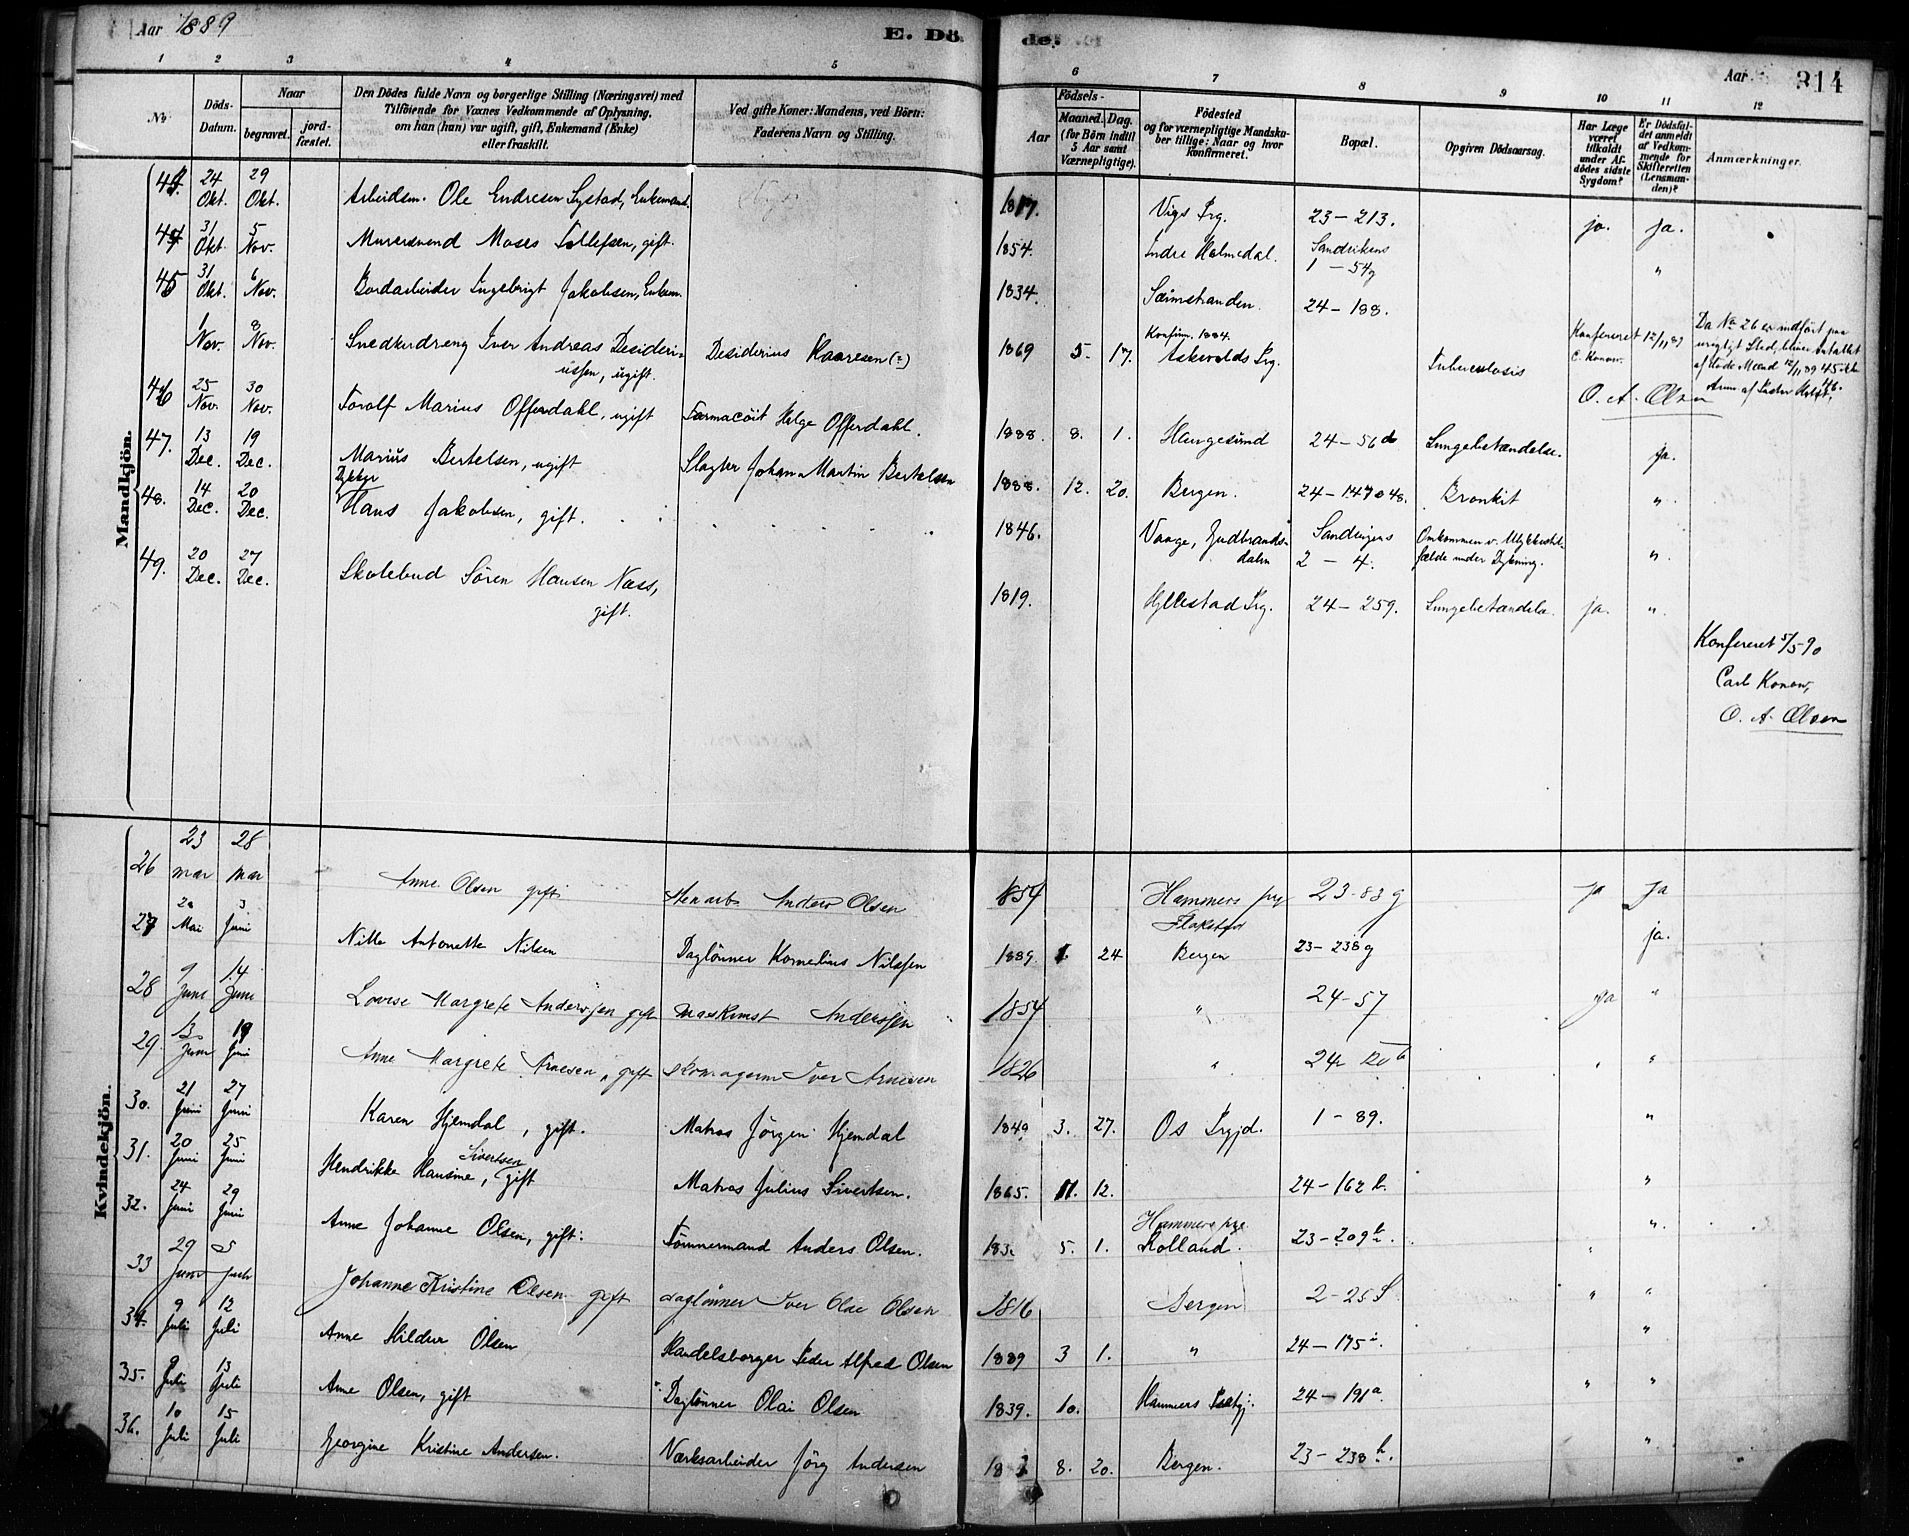 Aar 1889
E. Dö
de.
Aar
314
1 2 3 4 5 6 7 8 9 10 11 12
No
Döds-
Datum.
Naar
begravet.
jord-
fæstet.
Den Dödes fulde Navn og borgerlige Stilling (Næringsvei) med
Tilföiende for Voxnes Vedkommende af Oplysning,
om han (hun) var ugift, gift, Enkemand (Enke)
eller fraskilt.
Ved gifte Koner: Mandens, ved Börn:
Faderens Navn og Stilling.
Födsels-
Aar
Maaned. Dag.
(for Börn indtil
5 Aar samt
Værnepligtige).
Födested
og for værnepligtige Mandska-
ber tillige: Naar og hvor
Konfirmeret.
Bopæl.
Opgiven Dödsaarsag.
Har Læge
været
tilkaldt
under Af-
dödes sidste
Sygdom?
Er Dödsfal-
det anmeldt
af Vedkom-
mende for
Skifteretten
(Lensman-
den)?
Anmærkninger.
Mandkjön.
24 Okt. 29 Okt. Arbeidsm. Ole Endresen Systad, Enkemand. 1817. Vigs Prg. 23-213. ja. ja.
44 31 Okt. 5 Nov. Murersvend Moses Tollefsen, gift. 1854. Indre Holmedal. Sandvikens 1-54g "
45 31 Okt. 6 Nov. Bordarbeider Ingebrigt Jakobsen, Enkem. 1834. Søimstranden. 24-188.
1 Nov. 8 Nov. Snedkerdreng Iver Andreas Desideri-
ussen, ugift. Desiderius Kaaresen (?) 1869 5. 17. Konfirm. 1884. Askevolds Prg. Tuberculosis
Konfereret 12/11 89
C. Konow.
O. A. Olsen
Da No 26 er indført paa
urigtigt Sted, bliver Antallet
af døde Mænd 12/11 89 45 ikke
46.
46 25 Nov. 30 Nov. Torolf Marius Offerdahl, ugift Farmacöit Helge Offerdahl. 1888. 8. 1. Haugesund 24-56d Lungebetændelse. ja.
47. 13 Dec. 19 Dec. Marius Bertelsen, ugift Slagter Johan Martin Bertelsen 1888. 12. 20. Bergen. 24-147048. Bronkit "
48. 14 Dec. 20 Dec. Dykker
Hans Jakobsen, gift. 1846. Vaage, Gudbrands-
dalen Sandvigens
2-4. Omkommen v. Ulykkestil-
fælde under Dykning. "
49. 20 Dec. 27 Dec. Skolebud Sören Hansen Næss,
gift. 1819. Hyllestad Prg. 24-259. Lungebetændelse ja. "
Konfereret 5/5 90
Carl Konow,
O. A. Olsen
Kvindekjön.
26 23 mar 28 mar Anne Olsen gift. Stenarb. Anders Olsen 1854 Hammers prg 23-83g ja ja
27 Mai 3 Juni Nille Antonette Nilsen Daglönner Kornelius Nilssen 1889. 24 Bergen 23-238g ja.
28 9 June 14 June Lovise Margrete Anderssen gift maskinist Anderssen 1854 " 24-57 ja "
29. 13 Juni 19 Juni Anne Margrete Arnesen, gift Iver Arnesen 1826 " "
30. 21 Juni 27 Juni Karen Hjemdal, gift. Matros Jörgen Hjemdal 1849 3. 27. Os Prgjd. 1-89. "
31. 20 Juni 25 Juni Hendrikke Hansine, Sivertsen gift Matros Julius Sivertsen. 1865. 11. 12. 24-162b. "
32. 24 Juni 29 Juni Anne Johanne Olsen, gift. Tömmermand Anders Olsen. 5. 1. Hammers prg. 23-209b. "
33 29 Juni 5 Juli Johanne Kristine Olsen gift daglönner Iver Olsen 1816 Bergen " "
34. 9 Juli 12 Juli Anne Hildur Olsen Handelsborger Peder Alfred Olsen 1889 3 1. " 24-175i. "
35. 9 Juli 13 Juli Anne Olsen, gift Daglönner Olai Olsen 1839. 10. Hammers Prstgj. 24-191a. " "
36. 10 Juli 15 Juli Georgine Kristine Andersen. Værksarbeider Jörg Andersen 8. 20. Bergen. 23-238h. "